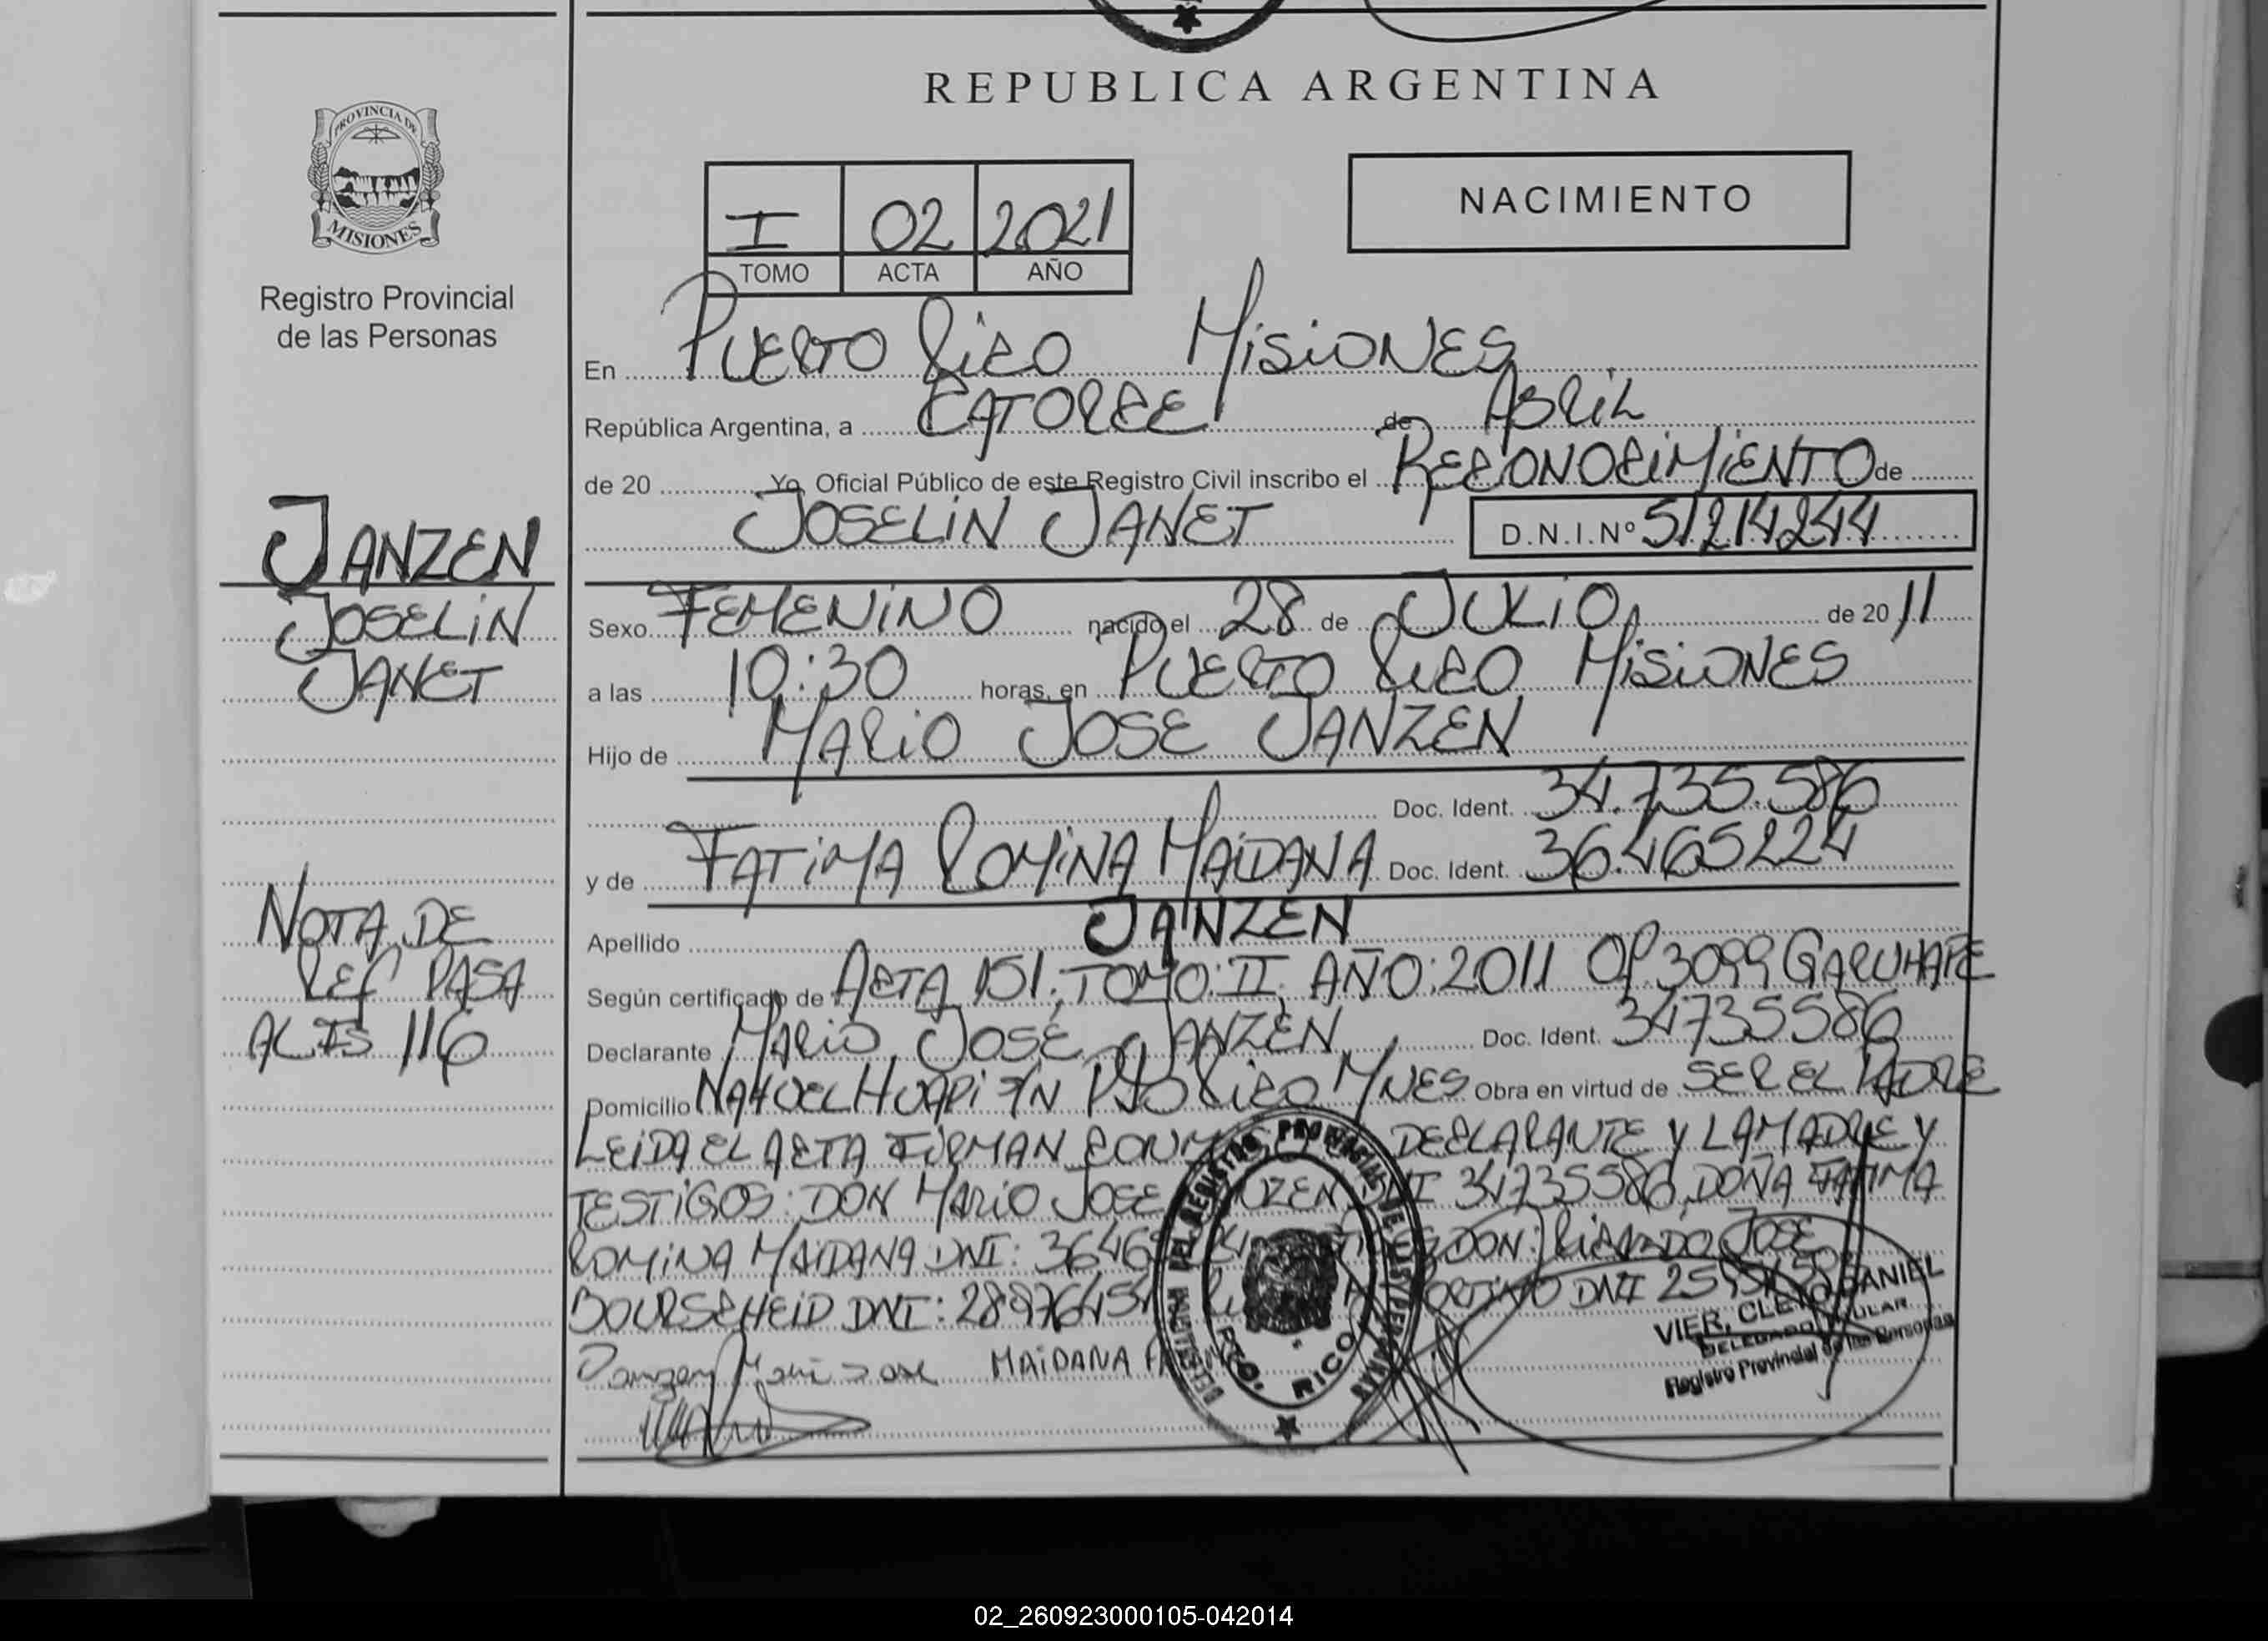 REPUBLICA ARGENTINA
PROVINCIA DE
MISIONES
Registro Provincial
de las Personas
NACIMIENTO
I 02 2021
TOMO ACTA AÑO
En PUERTO RICO MISIONES
República Argentina, a CATORCE de ABRIL
de 20 Yo, Oficial Público de este Registro Civil inscribo el RECONOCIMIENTO de
JOSELIN JANET D.N.I.Nº 51214244
JANZEN
JOSELIN
JANET
Sexo FEMENINO nacido el 28 de JULIO de 2011
a las 10:30 horas, en PUERTO RICO MISIONES
Hijo de MARIO JOSE JANZEN
Doc. Ident. 34.735.586
y de FATIMA ROMINA MAIDANA Doc. Ident. 36.465224
Apellido JANZEN
NOTA DE
REF PASA
116
Según certificado de ACTA 151; TOMO: II; AÑO: 2011 OP 3099 GARUHAPE
Declarante MARIO JOSÉ JANZEN Doc. Ident. 34735586
Domicilio NAHUEL HUAPI S/N PTO RICO MNES Obra en virtud de SER EL PADRE
LEIDA EL ACTA FIRMAN DECLARANTE Y LA MADRE Y
TESTIGOS: DON MARIO JOSE DNI 34735586 DOÑA FATIMA
ROMINA MAIDANA DNI: DON: RICARDO JOSE
BOURSCHEID DNI: DNI
MAIDANA
DEL REGISTRO PROVINCIAL DE LAS PERSONAS
PTO. RICO
VIER, DANIEL
Registro Provincial de las Personas
02_260923000105-042014